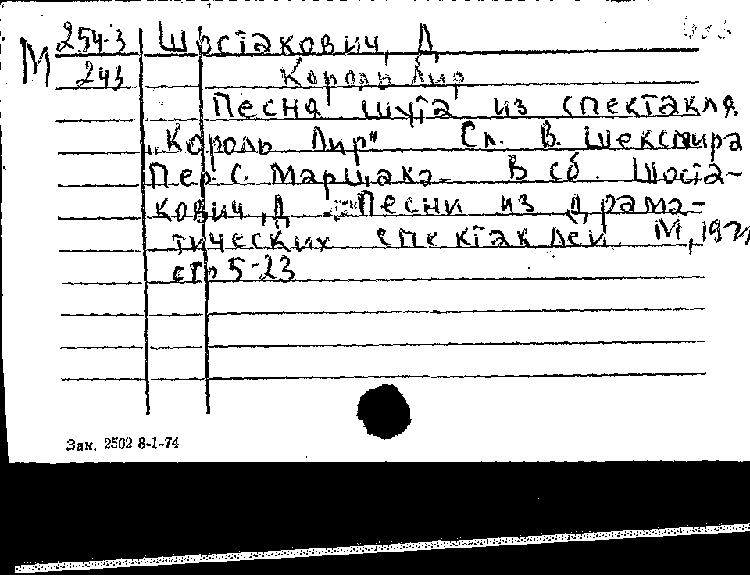 М 254-3 Шостакович, Д
243 Король Лир
Песня шута из спектакля
"Король Лир" Сл. В. Шекспира
Пер. С. Маршака. В сб. Шоста-
кович, Д Песни из драма-
тических спектаклей М,
стр 5-23
Зак. 2502 8-I-74